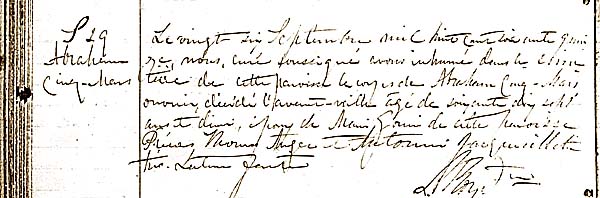 S 29
Abraham
Cinq-Mars
Le vingt six Septembre mil huit cent soixante quin
ze, nous, curé soussigné avons inhumé dans le cime
tière de cette paroisse le corps de Abraham Cinq-Mars
ouvrier, décédé l'avant-veille âgé de soixante dix sept
ans et demi, époux de Marie de cette paroisse
Présents Thomas Auger et Antoine